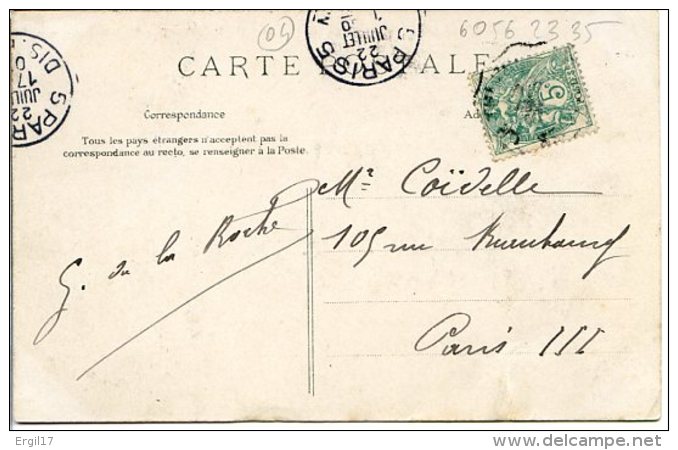 04
6056 22 35
CARTE POSTALE
5 PARIS 5
22
JUILLET
5 PAR
22
JUIL
17
DIS.
5
Correspondance
Ad
Tous les pays étrangers n'acceptent pas la
correspondance au recto, se renseigner à la Poste.
Mr Coïdelle
G. de la Roche
105 rue
Paris III
Ergil17
www.delcampe.net